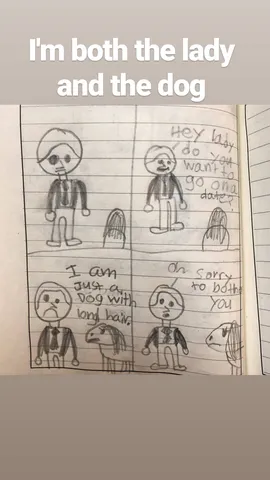 I'm both the lady
and the dog
Hey lady
do you
want to
go on a
date?
I am
Just a
DOG with
long hair.
Oh sorry
to both
you